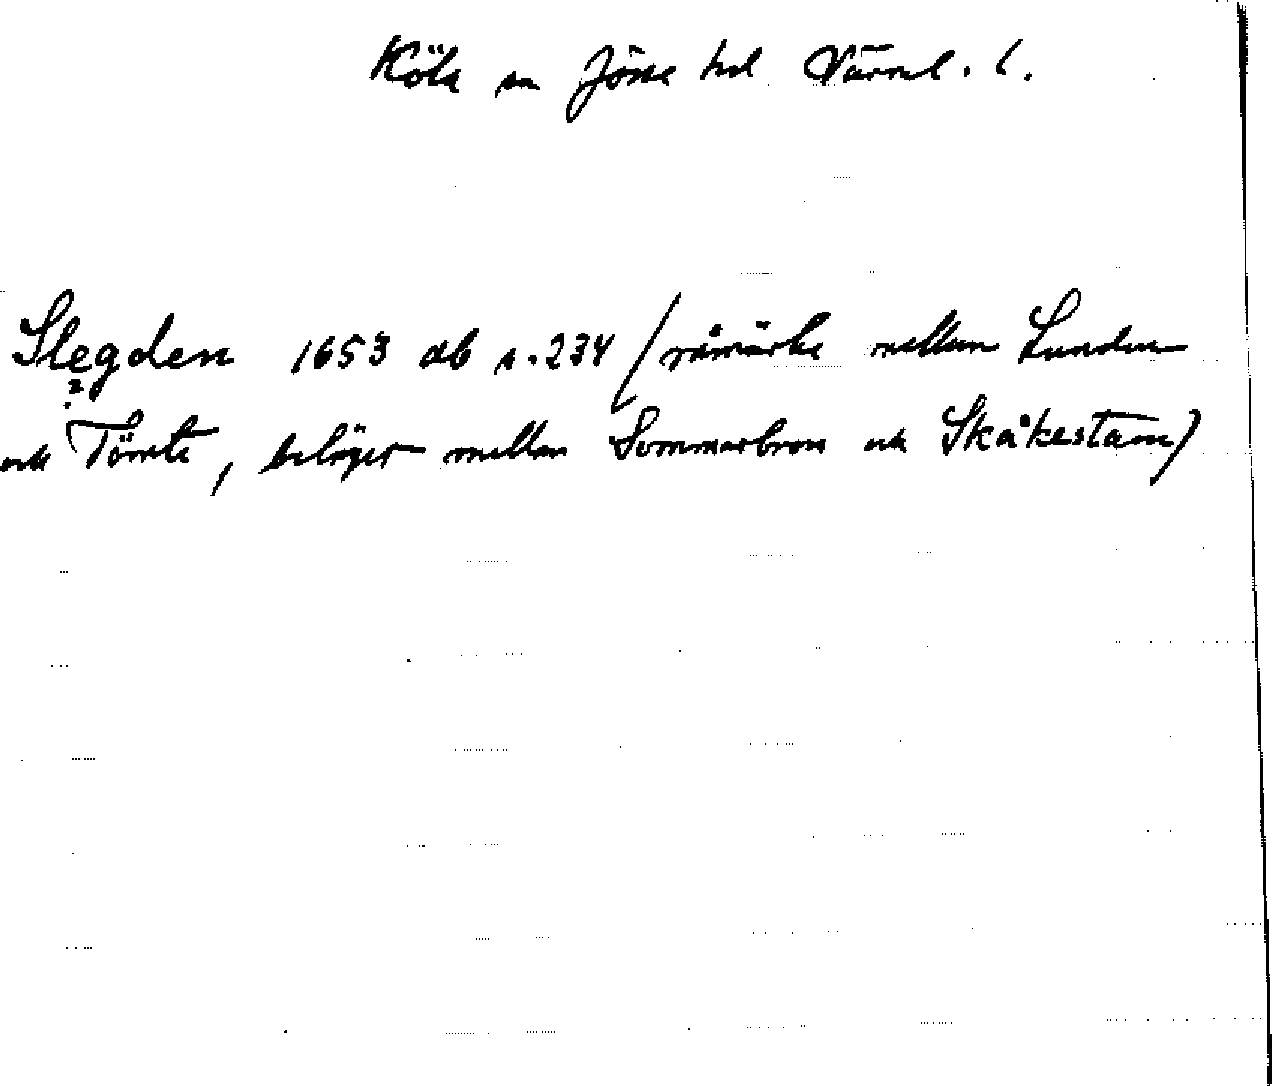 Köla sn Jösse hd Värml. l.
Slegden 1653 db s. 234 (råmärke mellan Lunden
?
och Tömte, beläget mellan Sommarbron och Skåkestam)